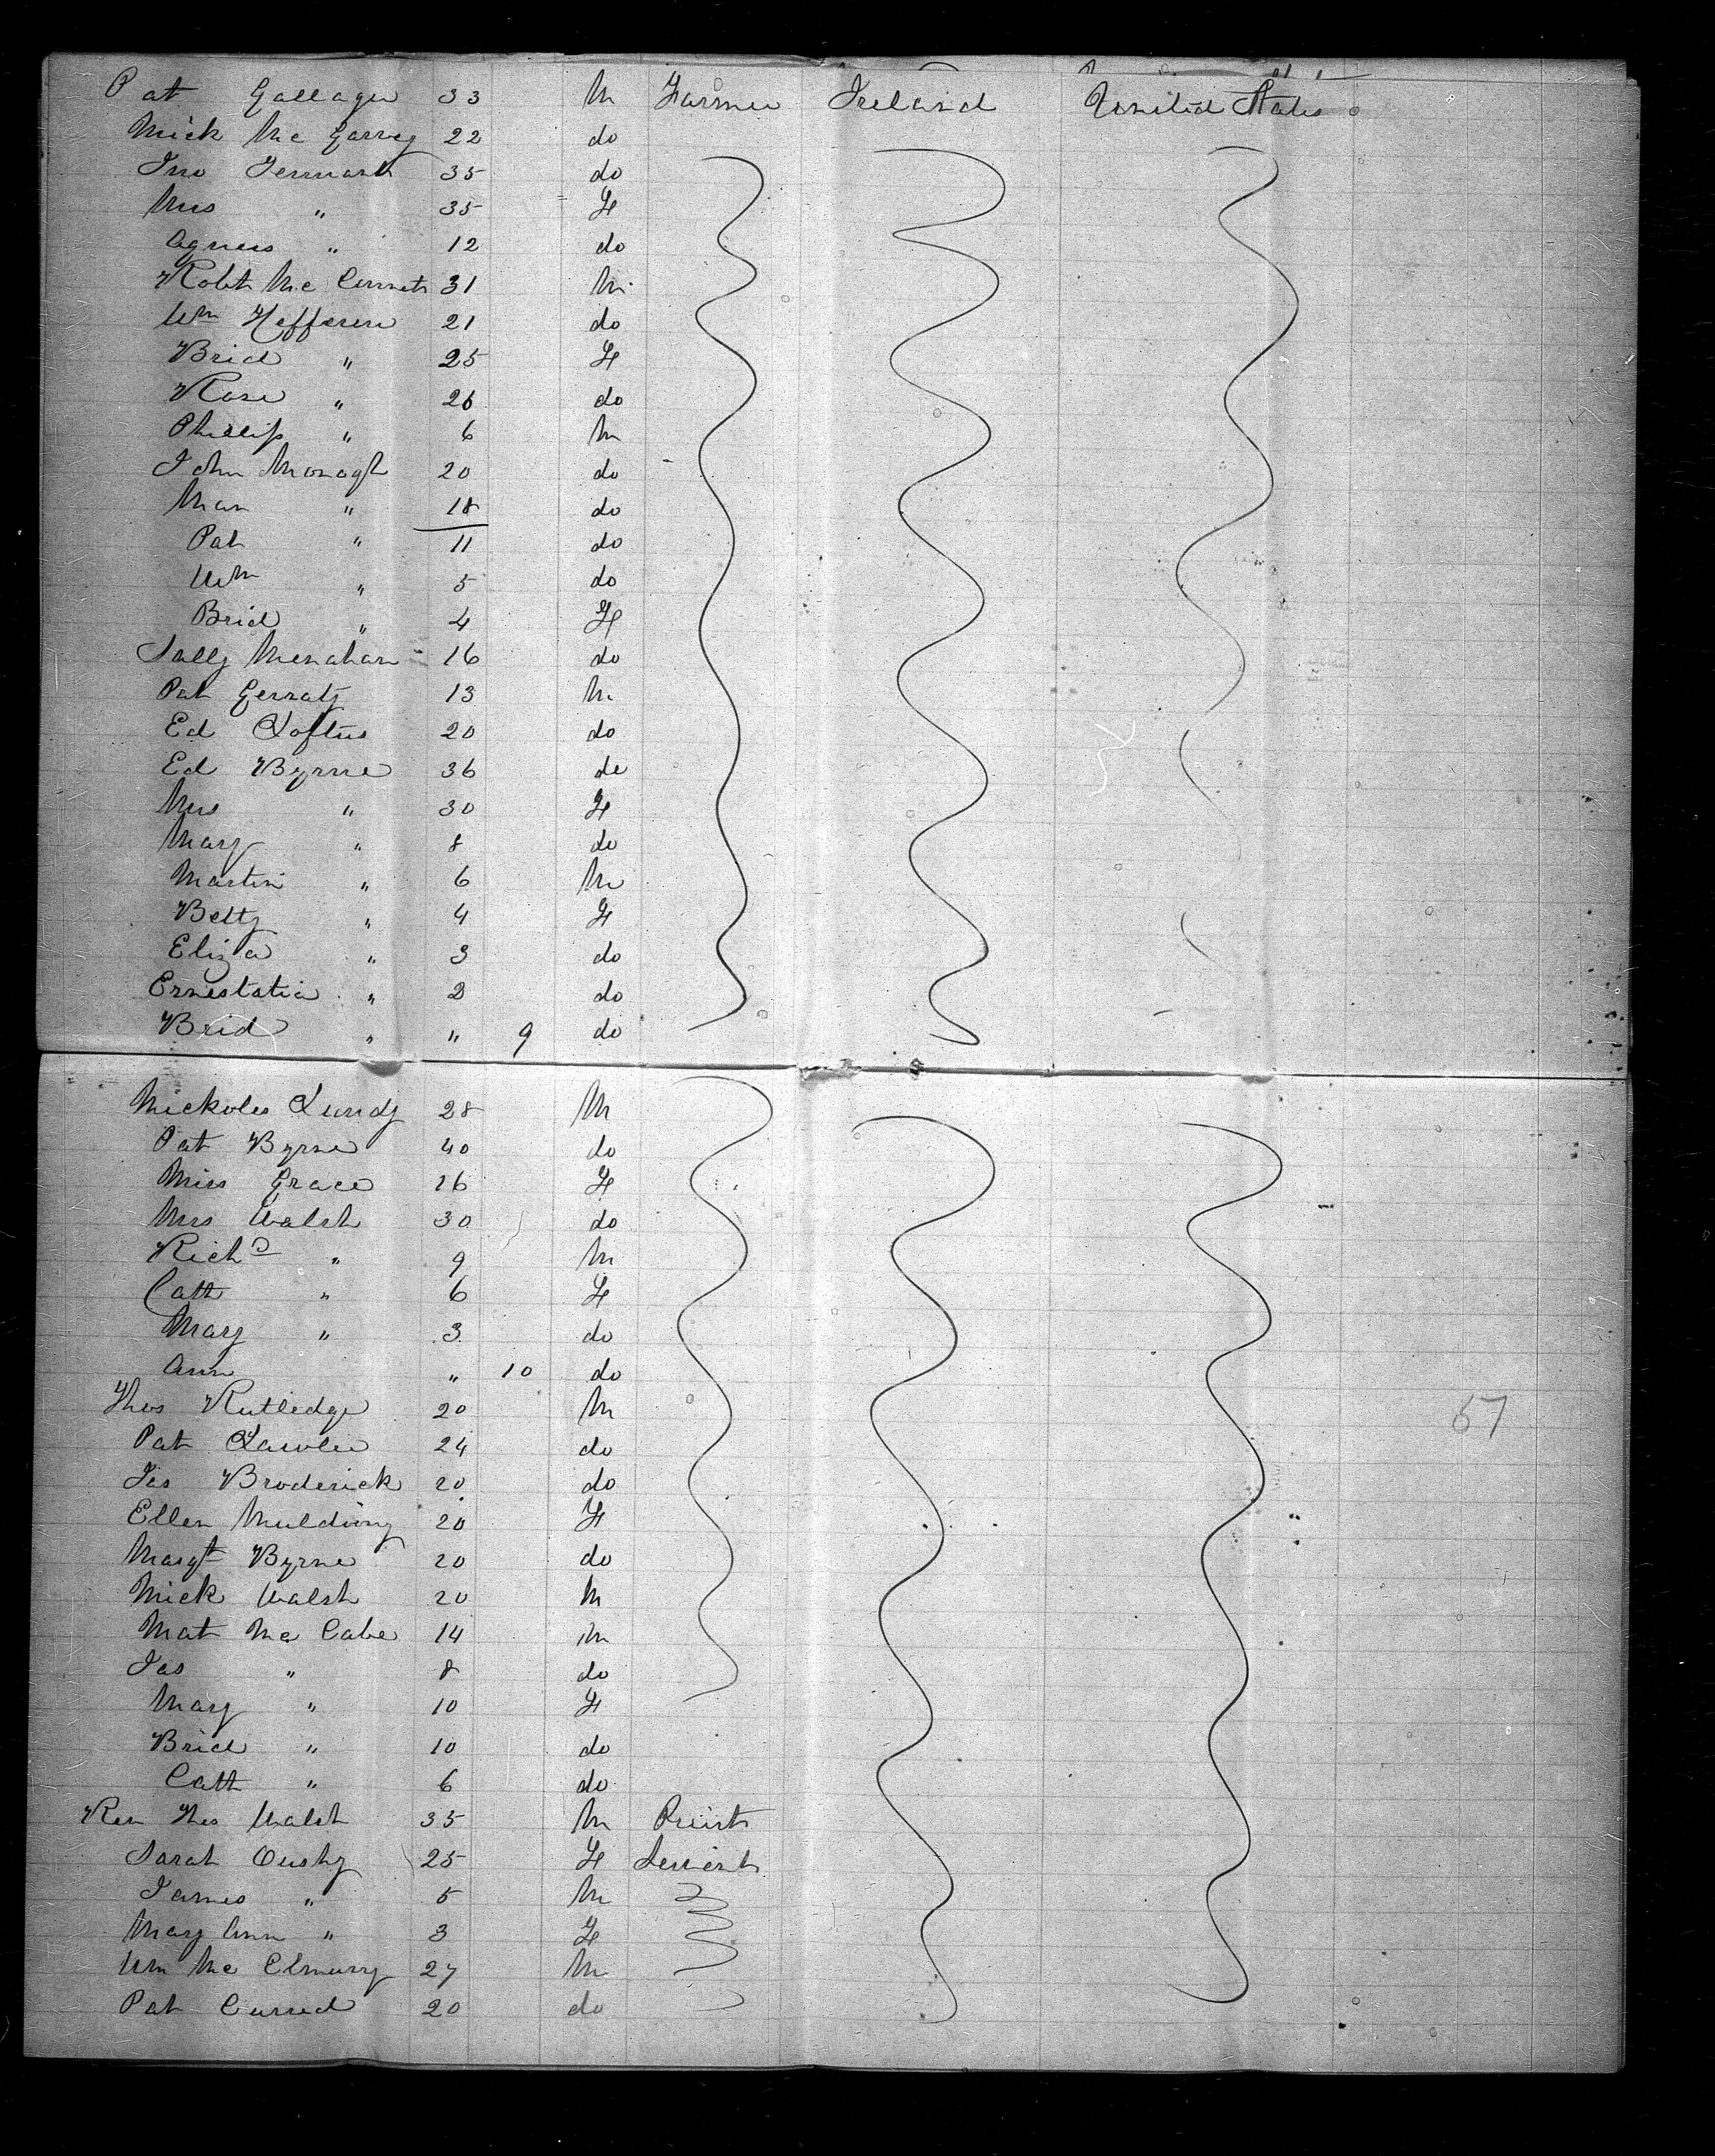 Pat Gallager 33 M Farmer Ireland United States
Mick Mc Garvey 22 do
Jno Tennant 35 do
Mrs " 35 F
Agness " 12 do
Robt Mc 31 M
Wm Hefferen 21 do
Brid " 25 F
Rose " 26 do
Phillip " 6 M
John Monagh 20 do
Mar " 18 do
Pat " 11 do
Wm " 5 do
Brid " 4 F
Sally Menahan 16 do
Pat Gerraty 13 M
Ed Loftus 20 do
Ed Byrne 36 do
Mrs " 30 F
Mary " 8 do
Martin " 6 M
Betty " 4 F
Eliza " 3 do
Ernestatia " 2 do
Brid " " 9 do
Nickoles Lundy 28 M
Pat Byrne 40 do
Miss Grace 16 F
Mrs Walsh 30 do
Richd " 9 M
Cath " 6 F
Mary " 3 do
Ann " 10 do
Thos Rutledge 20 M
Pat Lawler 24 do
Jas Broderick 20 do
Ellen 20 F
Margt Byrne 20 do
Mick Walsh 20 M
Mat Mc Cabe 14 M
Jas " 8 do
Mary " 10 F
Brid " 10 do
Cath " 6 do
Rev Thos Walsh 35 M Preist
Sarah 25 F Servent
James " 5 M
Mary Ann " 3 F
Wm Mc Elmurry 27 M
Pat 20 do
67